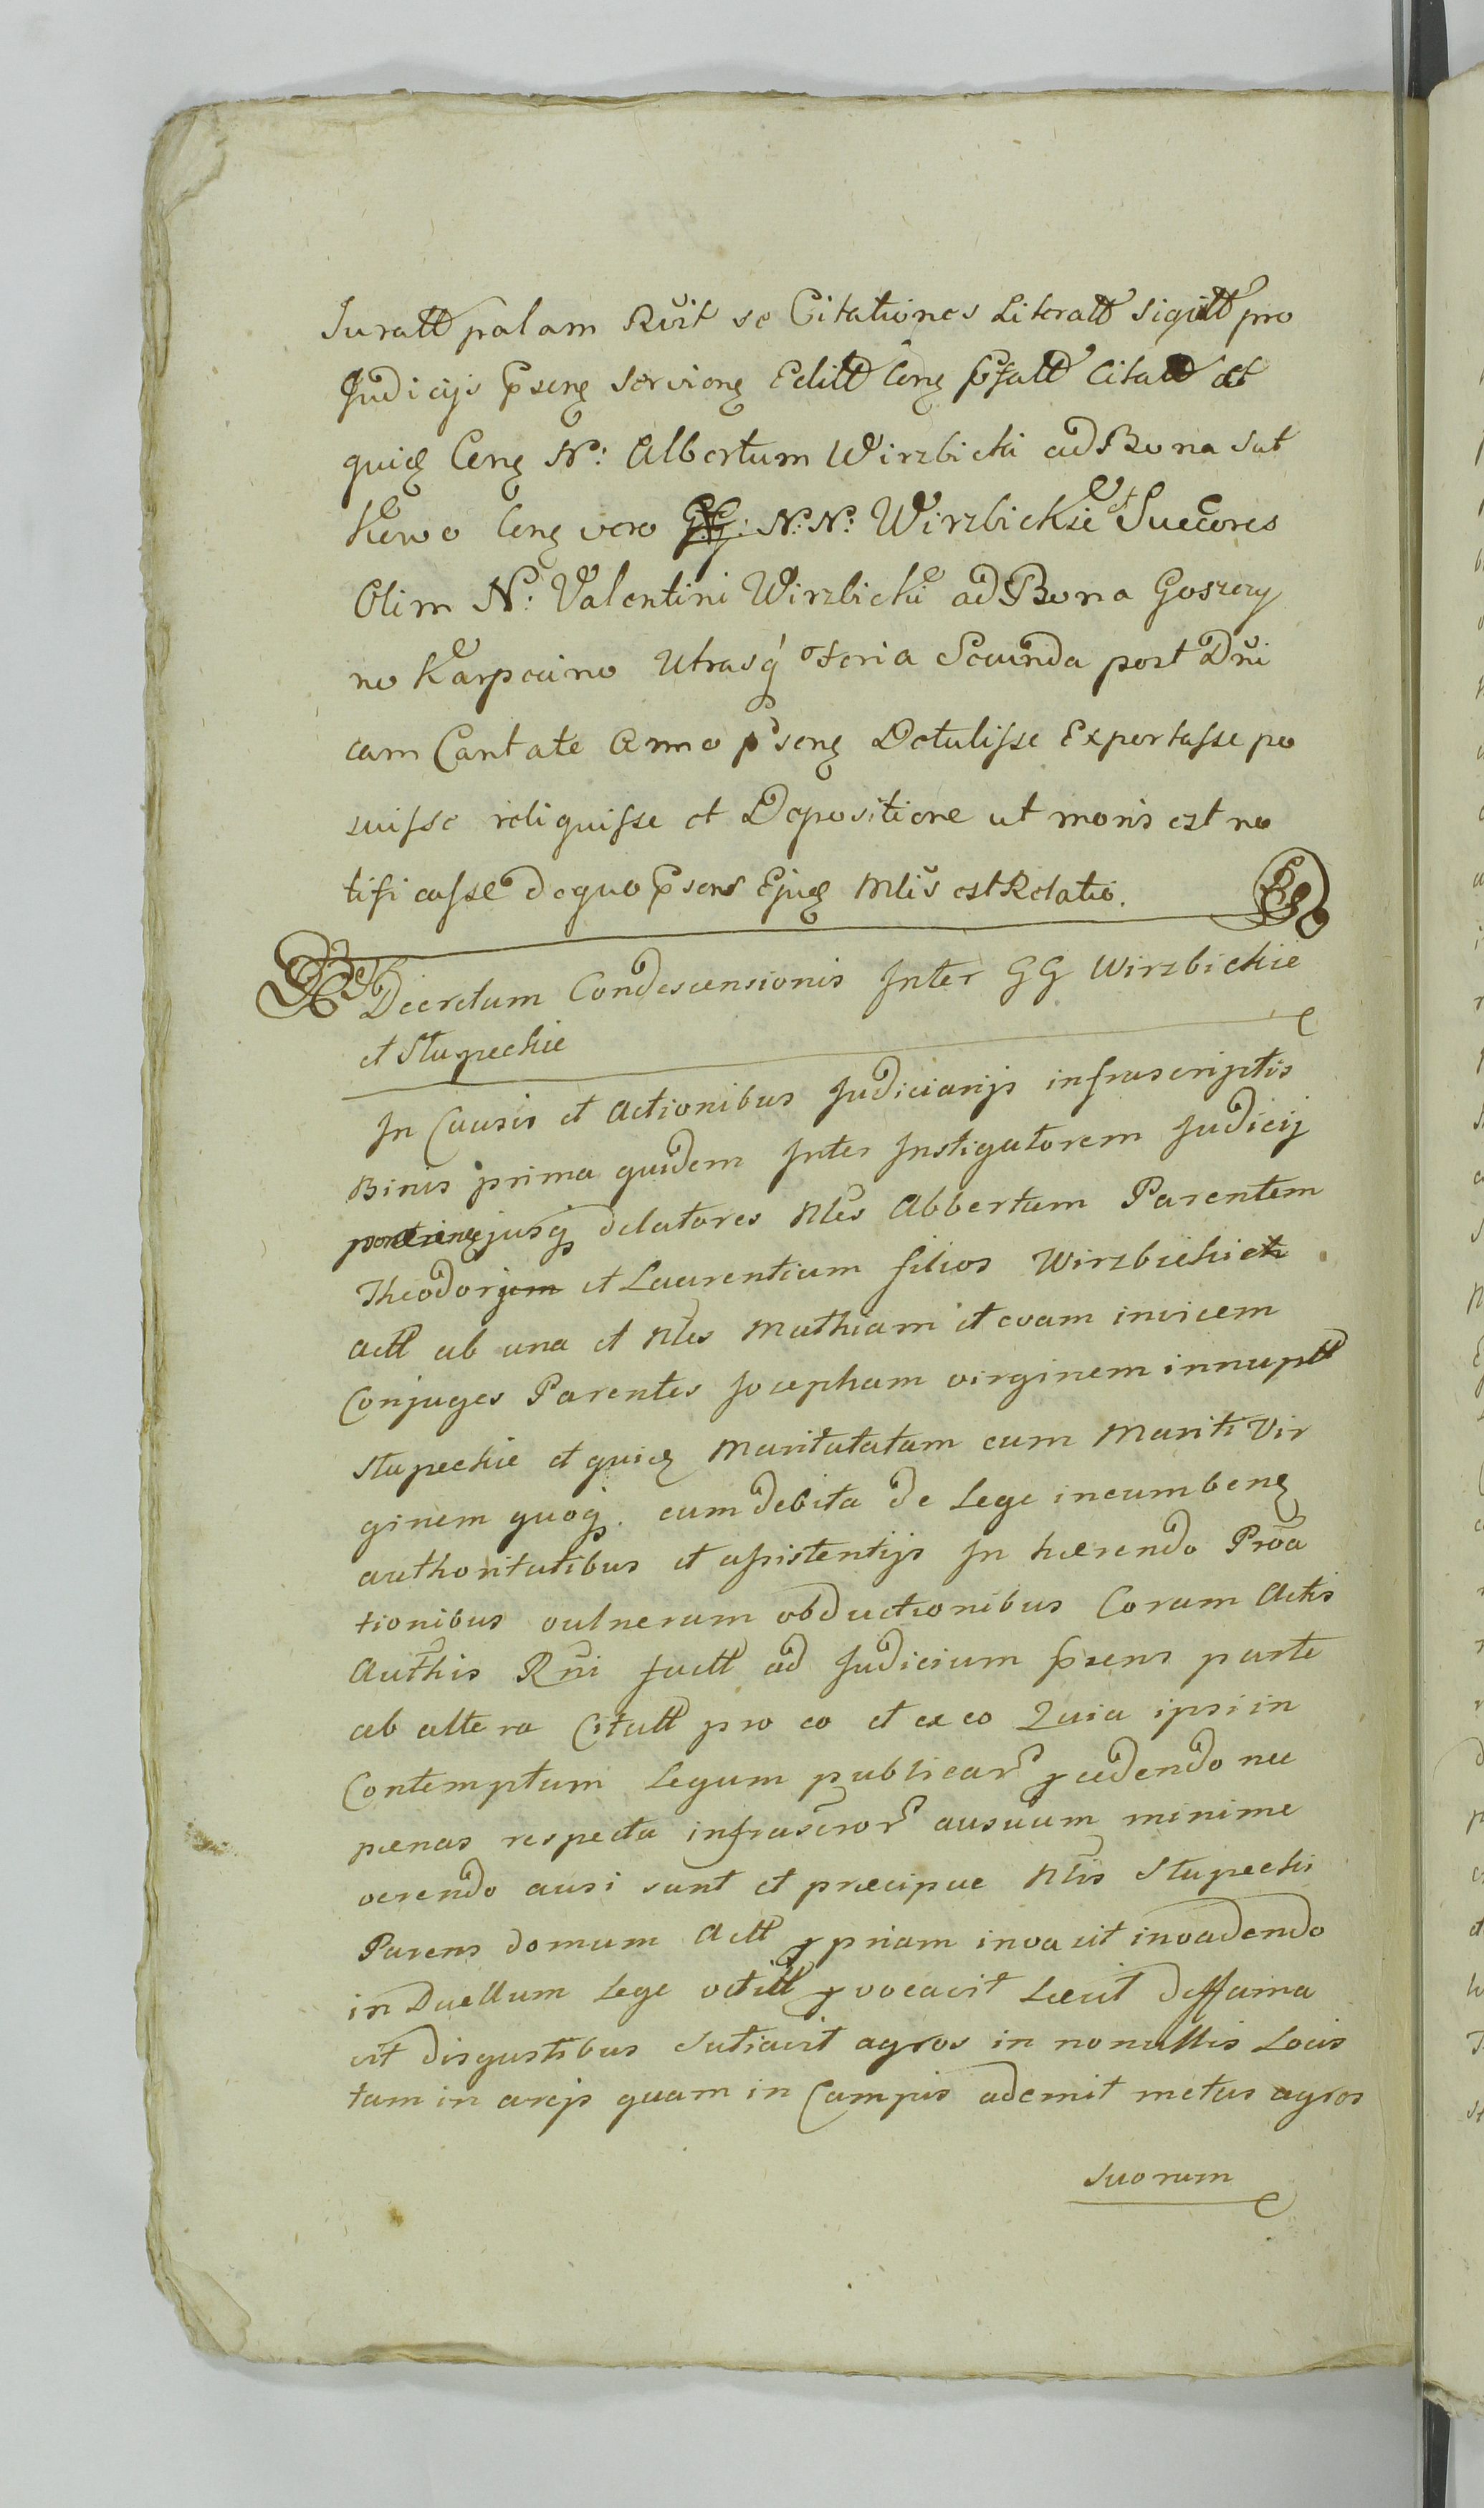 Juratt palam Rvit se Citationes Literatt Sigilt pro
Judicijs Psenę Servienę Editt Cenę Psatt Citatt et
quię Cenę N: Albertum Wirzbicki ad Bona Sut
kowo Cenę vero N: N: Wirzbickie et Suēcores
Olim N: Valentini Wirzbicki ad Bona Goszczy
no Karpacino Utrasq́ Feria Secunda post Dn̄i
cam Cantate Anno psenę Detulisse Exportasse po
suisse reliquisse et Depositione ut moris est no
tificasse de quo Psens Ejuę Mlis est Relatio.
Decretum Condescensionis Inter GG Wirzbickie
et Slupeckie
In Causis et Actionibus Judiciarijs infrascriptis
Binis prima quidem Inter Instigatorem Judicij
ejusq delatores Nles Abbertum Parentem
Theodorum et Laurentium filios Wirzbickich
Actt ab una et Nles Mathiam et evam invicem
Conjuges Parentes Josepham virginem innuptt
Slupeckie et quię Maritatatam cum Mariti Vir
ginem quoq. cum debita de Lege incumbenę
authoritatibus et assistentijs In hærendo Prōa
tionibus vulnerum obductionibus Coram Actis
Authis Rn̄i factt ad Judicium Psens parte
ab altera Citatt pro eo et ex eo Quia ipsi in
Contemptum Legum publicar cudendo nec
pænas respectu infrascror ausuum minime
verendo ausi sunt et præcipue Nlis Slupecki
Parens domum Actt ppriam invasit invadendo
in Duellum Lege vetitt pvocavit Læsit deffama
vit disgustibus Satiavit agros in nonullis Locis
tam in areis quam in Campis ademit metas agros
Suorum